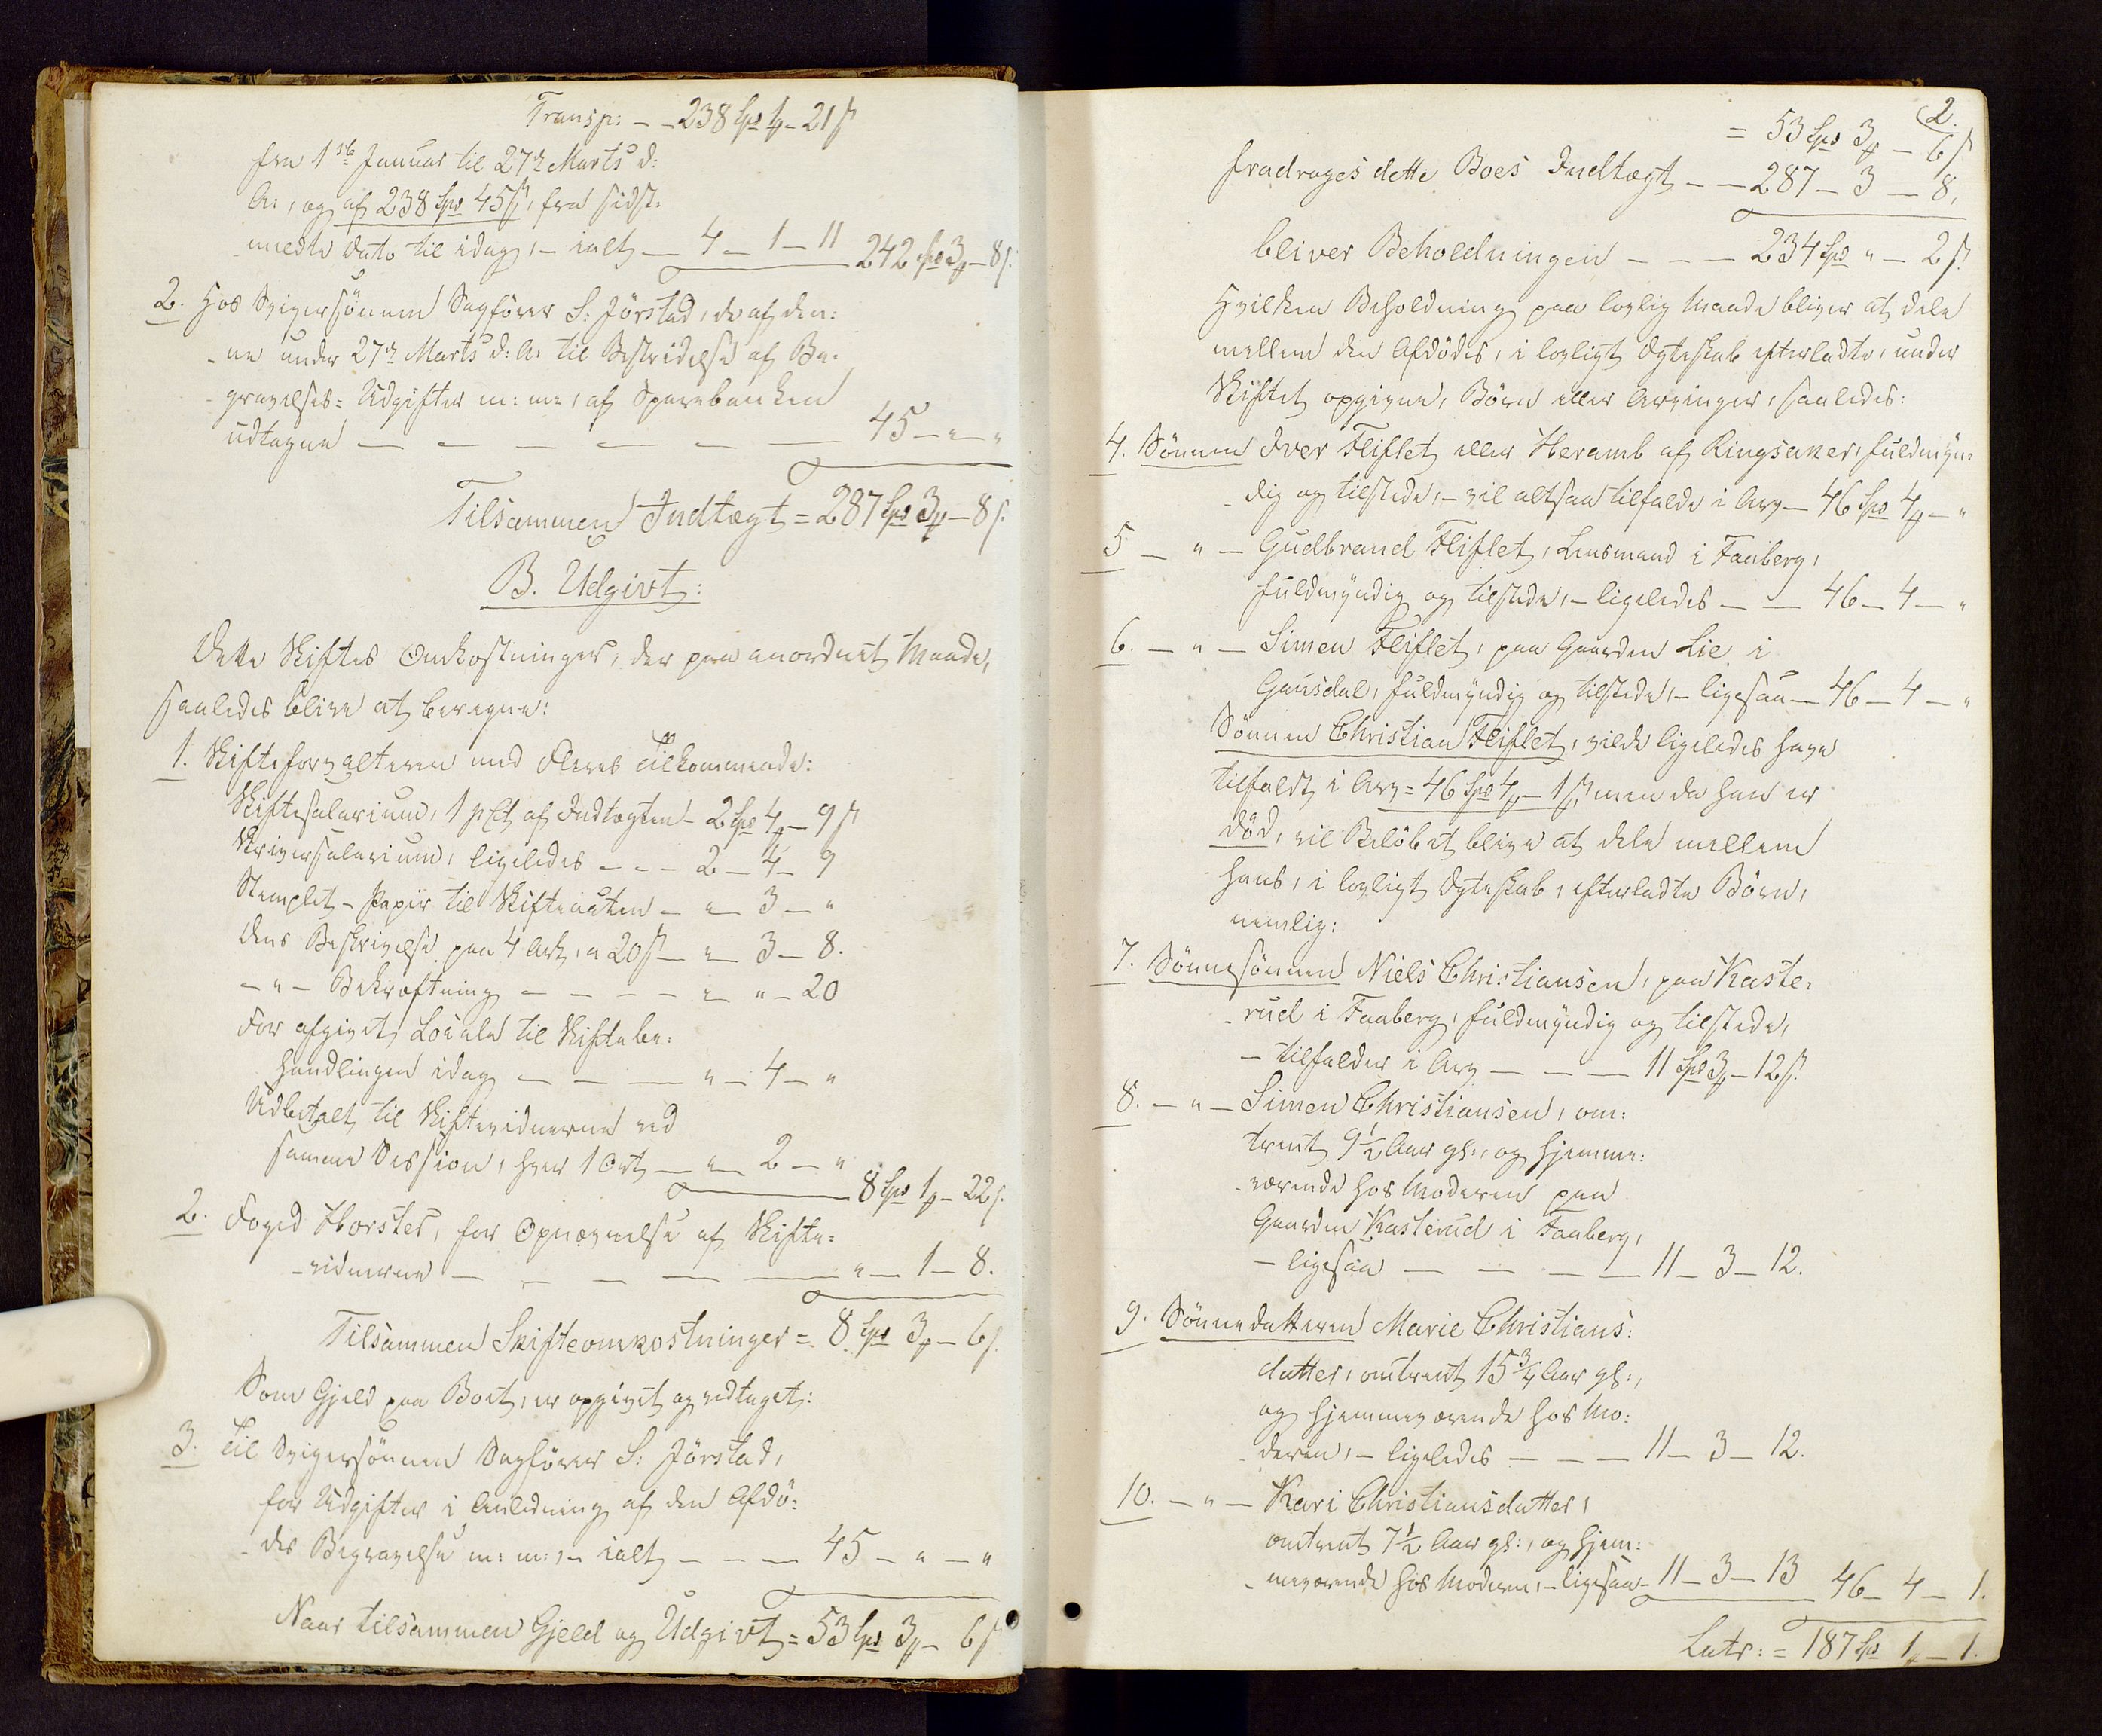 Transp: – – 238 Spd 1 # – 21 ß
fra 1ste Januar til 27de Marts d:
A:, og af 238 Spd 45 ß, fra sidst-
meldte Dato til idag, – ialt, – 4 – 1 – 11 242 Spd 3 # – 8 ß.
2. Hos Svigersönnen Sagförer S: Jörstad, de af den:
ne under 27de Marts d: A: til Bestridelse af Be-
gravelses= Udgifter m: m:, af Sparebanken
udtagne – – – – – – 45 – " – "
Tilsammen Indtægt = 287 Spd 3 # – 8 ß.
B. Udgivt:
Dette Skiftes Omkostninger, der paa anordnet Maade,
saaledes blive at beregne:
1. Skifteforvalteren med Fleres Tilkommende:
Skiftesalarium, 1 pCt af Indtægten – 2 Spd 4 # – 9 ß
Skriversalarium, ligeledes – – – 2 – 4 – 9
Stemplet – Papir til Skifteacten – " – 3 – "
Dens Beskrivelse paa 4 Ark, a 20 ß – " – 3 – 8.
– " – Bekræftning – – – – " – " – 20
For afgivet Locale til Skiftebe-
handlingen idag – – – " – 4 – "
Udbetalt til Skiftevidnerne ved
samme Session, hver 1 Ort – " – 2 – " 8 Spd 1 # – 22 ß.
2. Foged Horster, for Opnævnelse af Skifte=
vidnerne – – – – – " – 1 – 8.
Tilsammen Skifteomkostninger = 8 Spd 3 # – 6 ß.
Som Gjeld paa Boet, er opgivet og vedtaget:
3. Til Svigersönnen Sagförer S: Jörstad,
for Udgifter i Anledning af den Afdö=
des Begravelse m: m:, – ialt – – – 45 – " – "
Naar tilsammen Gjeld og Udgivt = 53 Spd 3 # – 6 ß
2.
= 53 Spd 3 # – 6 ß
fradrages dette Boes Indtægt – – 287 – 3 – 8,
bliver Beholdningen – – – 234 Spd " – 2 ß.
Hvilken Beholdning paa lovlig Maade bliver at dele
mellem den Afdödes, i lovligt Ægteskab efterladte, under
Skiftet opgivne, Börn eller Arvinger, saaledes:
4. Sönnen Iver Fliflet, eller Heramb af Ringsaker, fuldmyn=
dig og tilstede, – vil altsaa tilfalde i Arv – 46 Spd 4 # – "
5 – " – Gudbrand Fliflet, Lensmand i Faaberg,
fuldmyndig og tilstede, – ligeledes – – 46 – 4 – "
6. – " – Simen Fliflet, paa Gaarden Lie i
Gausdal, fuldmyndig og tilstede, – ligesaa – 46 – 4 – "
Sönnen Christian Fliflet, vilde ligeledes have
tilfaldt i Arv = 46 Spd 4 # – 1 ß, men da han er
död, vil Belöbet blive at dele mellem
hans, i lovligt Ægteskab, efterladte Börn,
nemlig:
7. Sönnesönnen Niels Christiansen, paa Kaste-
rud i Faaberg, fuldmyndig og tilstede,
– tilfalder i Arv – – – 11 Spd 3 # – 12 ß.
8. – " – Simen Christiansen, om:
trent 9 1/2 Aar gl:, og hjemme:
værende hos Moderen paa
Gaarden Kasterud i Faaberg,
– ligesaa – – – – 11 – 3 – 12.
9. Sönnedatteren Marie Christians:
datter, omtrent 15 3/4 Aar gl:,
og hjemmeværende hos Mo:
deren, – ligeledes – – – 11 – 3 – 12.
10. – " – Kari Christiansdatter,
omtrent 7 1/2 Aar gl:, og hjem:
meværende hos Moderen, – ligesaa – 11 – 3 – 13 46 – 4 – 1.
Latr: = 187 Spd 1 # – 1.